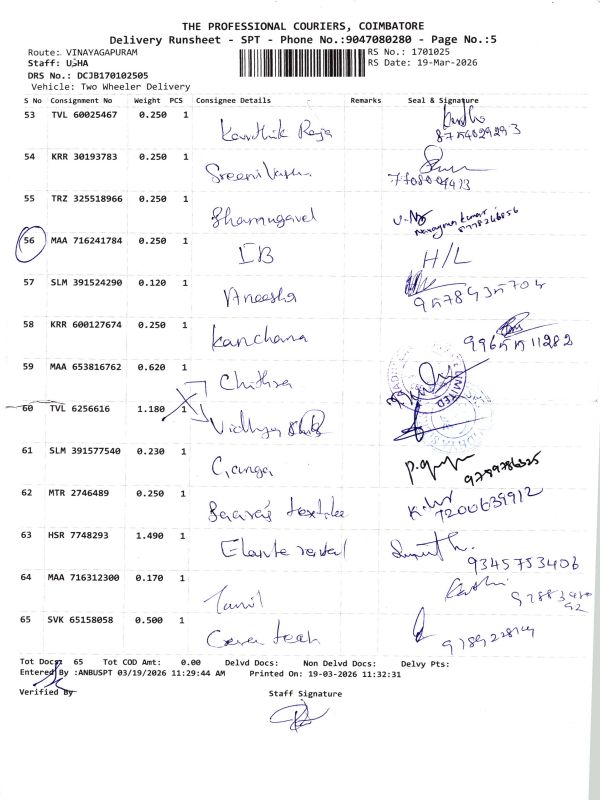 THE PROFESSIONAL COURIERS, COIMBATORE
Delivery Runsheet - SPT - Phone No.:9047080280 - Page No.:5
Route: VINAYAGAPURAM
RS No.: 1701025
Staff: USHA
RS Date: 19-Mar-2026
DRS No.: DCJB170102505
Vehicle: Two Wheeler Delivery
S No Consignment No Weight PCS Consignee Details Remarks Seal & Signature
53 TVL 60025467 0.250 1 Karthik Raja
54 KRR 30193783 0.250 1 Sreenivasan
55 TRZ 325518966 0.250 1 Shanmugavel
56 MAA 716241784 0.250 1 IB H/L
57 SLM 391524290 0.120 1 Aneesha
58 KRR 600127674 0.250 1 Kanchana
59 MAA 653816762 0.620 1 Chithra
60 TVL 6256616 1.180 1 Vidhya
61 SLM 391577540 0.230 1 Ganga
62 MTR 2746489 0.250 1 7200639912
63 HSR 7748293 1.490 1 Elante rental 9345753406
64 MAA 716312300 0.170 1 Tamil
65 SVK 65158058 0.500 1 tech
Tot Docs: 65 Tot COD Amt: 0.00 Delvd Docs: Non Delvd Docs: Delvy Pts:
Entered By :ANBUSPT 03/19/2026 11:29:44 AM Printed On: 19-03-2026 11:32:31
Verified By Staff Signature